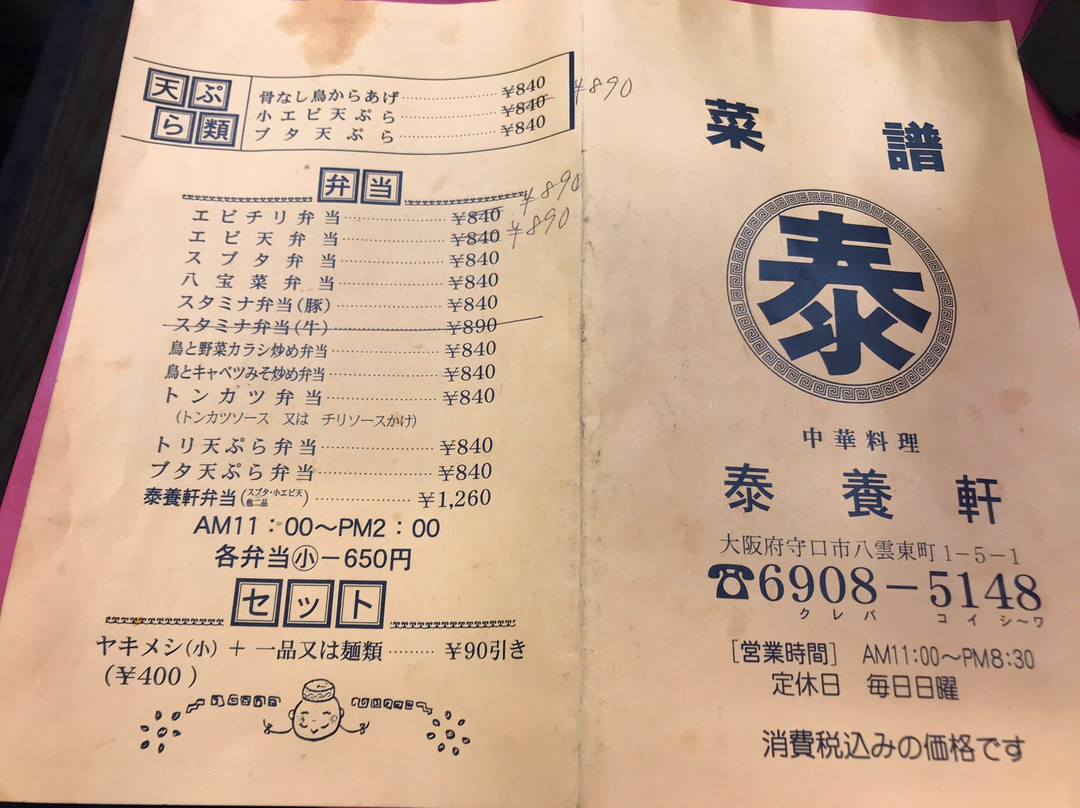 天ぷら類
骨なし鳥からあげ ¥840
小エビ天ぷら ¥840 ¥890
ブタ天ぷら ¥840
弁当
エビチリ弁当 ¥840 ¥890
エビ天弁当 ¥840 ¥890
スブタ弁当 ¥840
八宝菜弁当 ¥840
スタミナ弁当(豚) ¥840
スタミナ弁当(牛) ¥890
鳥と野菜カラシ炒め弁当 ¥840
鳥とキャベツみそ炒め弁当 ¥840
トンカツ弁当 ¥840
(トンカツソース 又は チリソースかけ)
トリ天ぷら弁当 ¥840
ブタ天ぷら弁当 ¥840
泰養軒弁当(スブタ・小エビ天 他二品) ¥1,260
AM11:00~PM2:00
各弁当㊙小-650円
セット
ヤキメシ(小) + 一品又は麺類 ¥90引き
(¥400)
菜譜
泰
中華料理
泰養軒
大阪府守口市八雲東町1-5-1
☎6908-5148
クレバ コイシ~ワ
[営業時間] AM11:00~PM8:30
定休日 毎日日曜
消費税込みの価格です